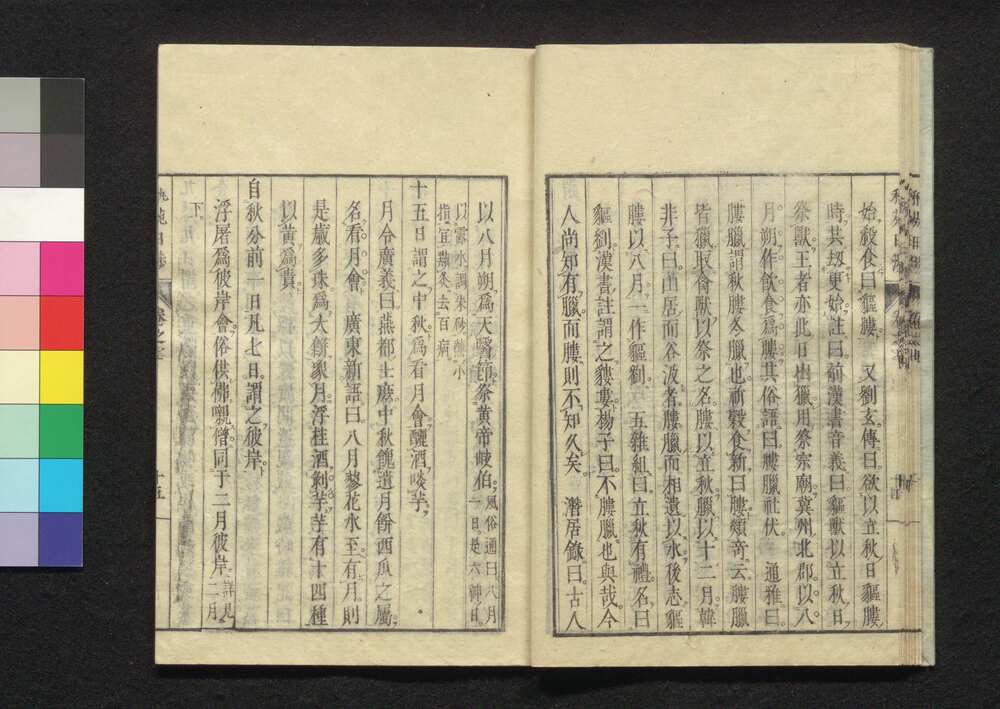 始殺食曰貙膢　又劉玄傳曰欲以立秋日貙膢
時共劫更始注曰前漢書音義曰貙獸以立秋日
祭獸王者亦此日出獵用祭宗廟冀州北郡以八
月朔作飲食爲膢其俗語曰膢臘社伏　通雅曰
膢臘謂秋膢冬臘也祈穀食新曰膢
皆獵取禽獸以祭之名膢以立秋臘以十二月韓
非子曰山居而谷汲者膢臘而相遺以水後志貙
膢以八月一作貙劉　五雜組曰立秋有禮名曰
貙劉漢書註謂之貙膢楊子曰不膢臘也與哉今
人尚知有臘而膢則不知久矣　潛居錄曰古人
以八月朔爲天醫節祭黄帝岐伯風俗通曰八月一日是六神日
以露水調朱砂蘸小指宜點灸去百病
十五日謂之中秋爲看月會釃酒啖芋
月令廣義曰燕都士庶中秋餽遺月餠西瓜之屬
名看月會　廣東新語曰八月蓼花水至有月則
是歲多珠爲大餠象月浮桂酒剝芋芋有十四種
以黃爲貴
自秋分前一日凡七日謂之彼岸
浮屠爲彼岸會俗供佛嚫僧同于二月彼岸詳見二月
下
十五